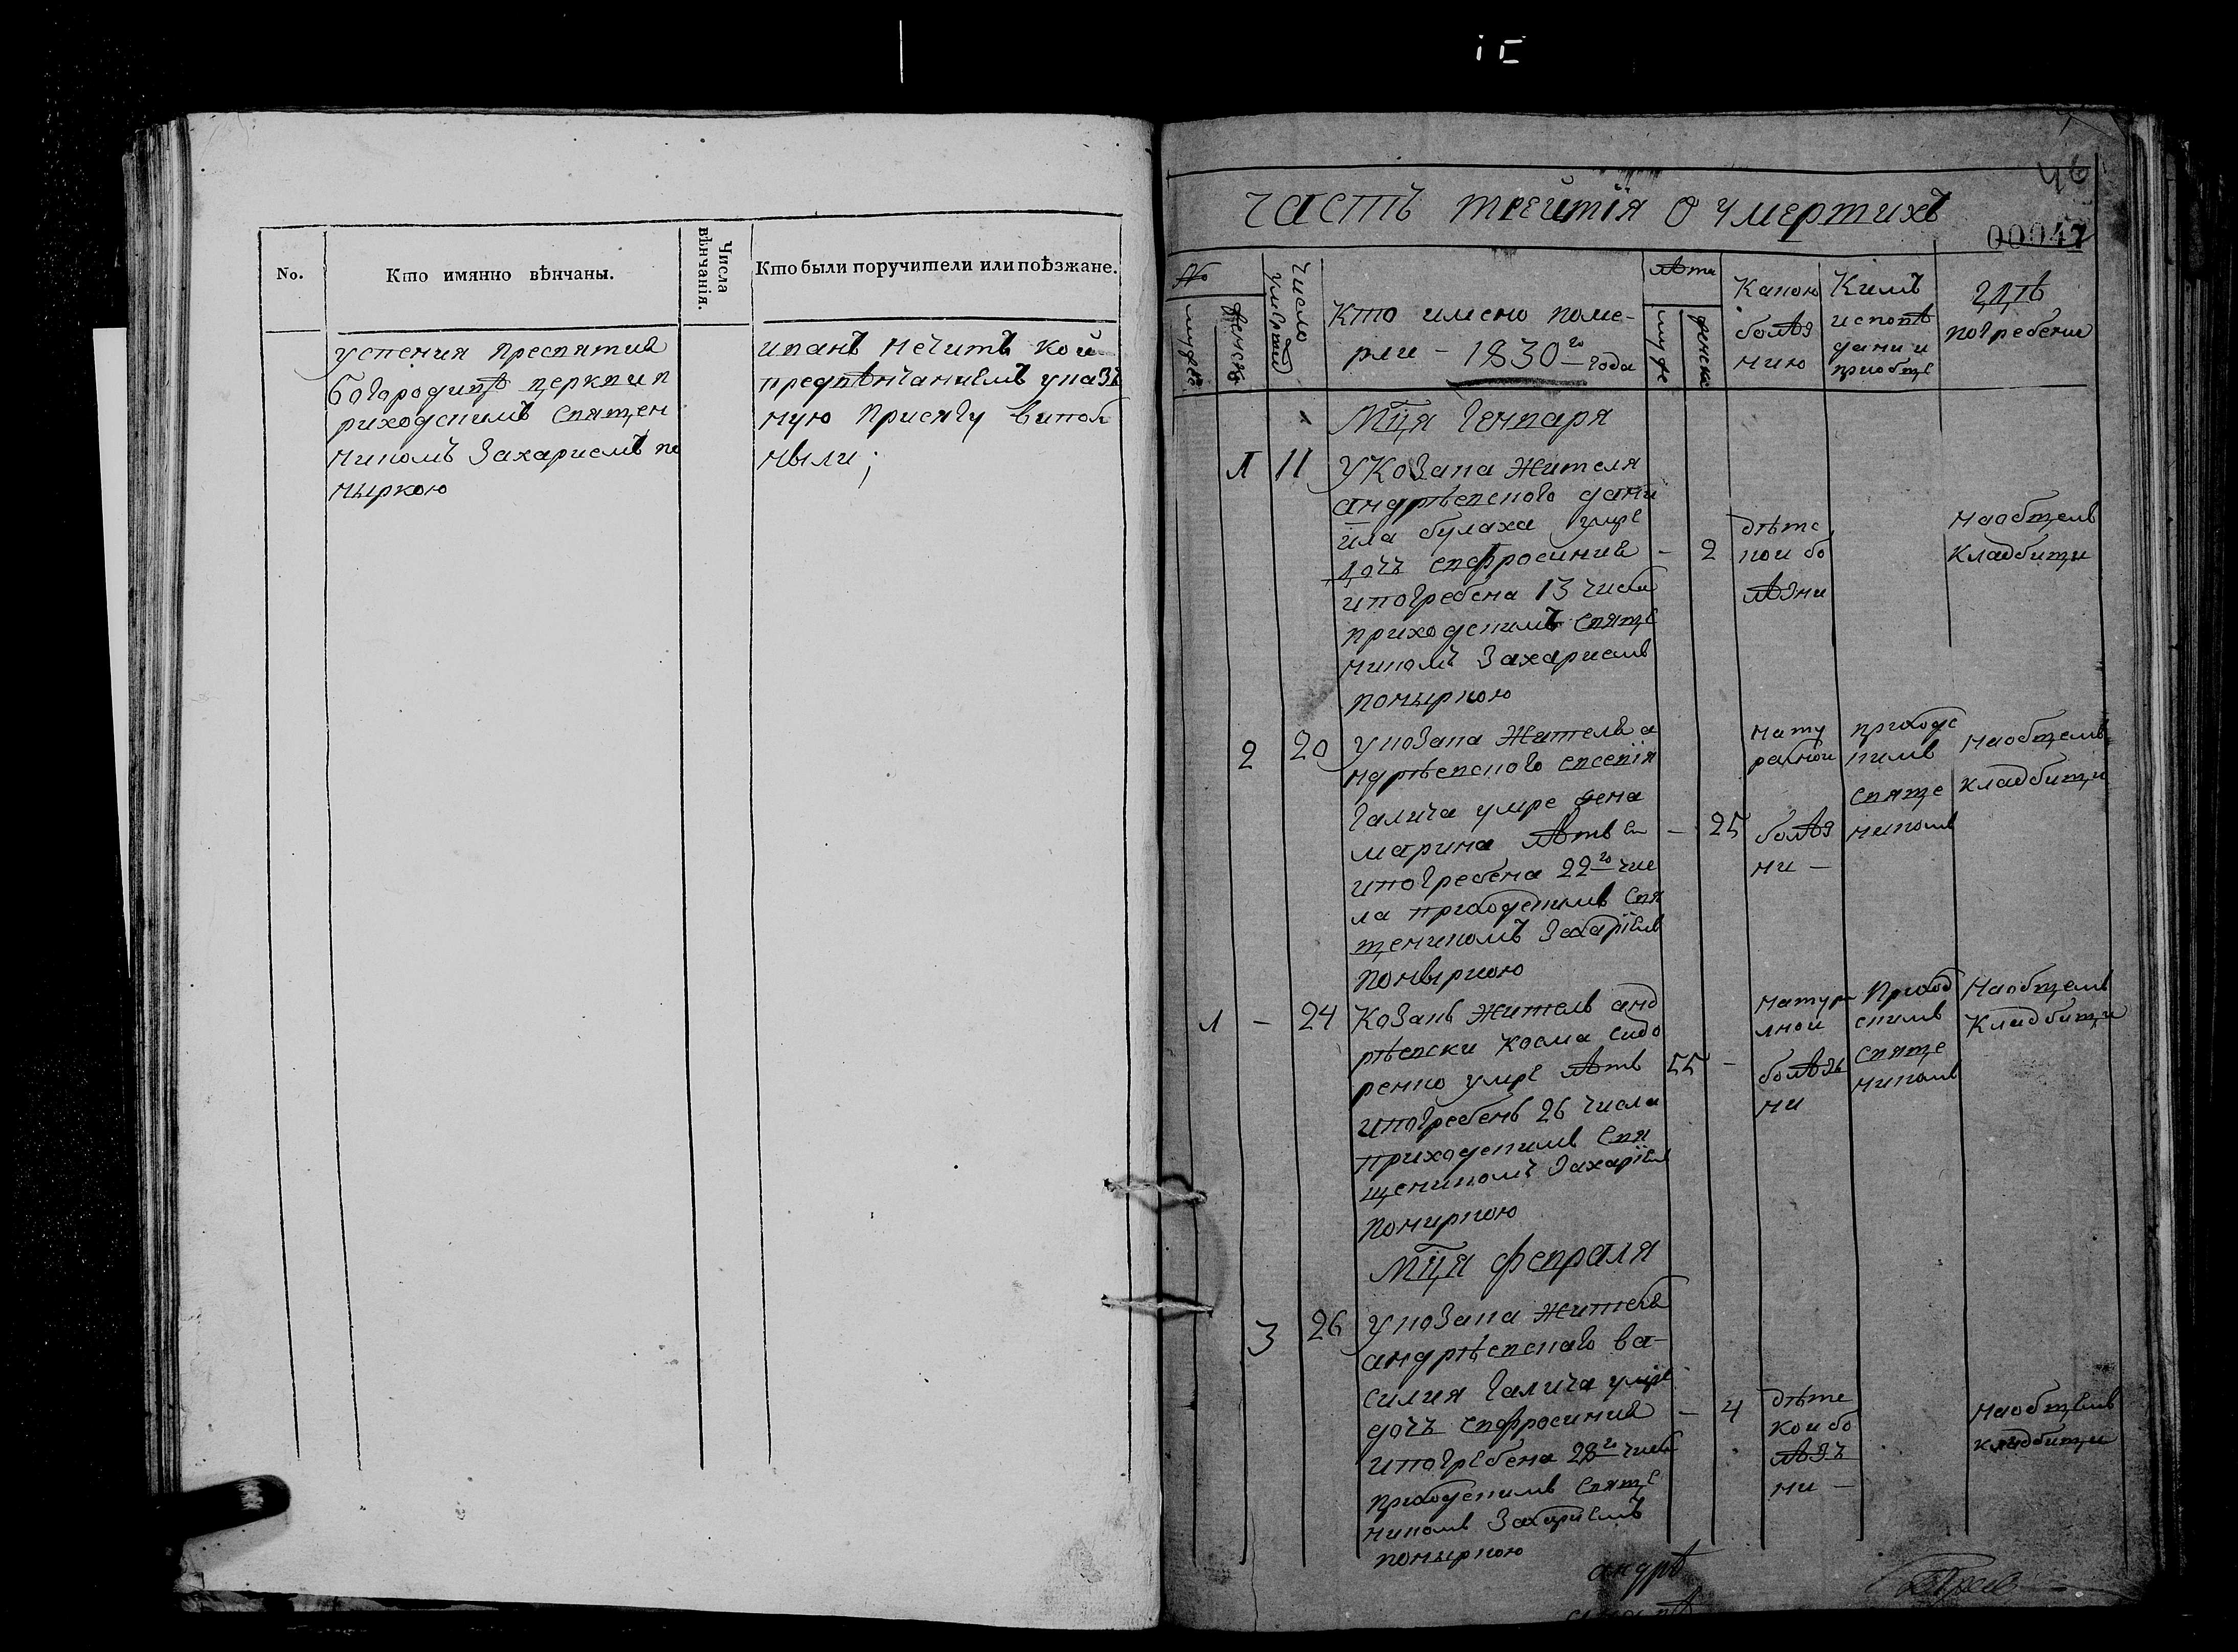 No.
Кто имянно вѣнчаны.
Числа вѣнчанія.
Кто были поручители или поѣзжане.
успения пресвятия
богородицѣ церкви п
риходскимъ Священ
никомъ Захариемъ по
ныркою
иванъ нечитъ кои
предвѣнчаниемъ указ
ную присягу випол
ныли;
46
часть трейтія о умертихъ
00047
№
мужс
женск
число умертія
Кто имено поме-
рли - 1830го года
лѣта
муже
женск
Какою
болѣз
нию
Кимъ
исповѣ
дани и
приобще
гдѣ
погребени
Мця Генваря
1
11
У Козака жителя
андрѣевского дани
ила булаха умре
дочъ евфросиния
ипогребена 13 числа
приходскимъ свяще
никомъ Захариемъ
поныркою
-
2
дѣтс
кои бо
лѣзни
наобщемъ
кладбищи
2
20
у козака жителя а
ндрѣевского евсевія
Галича умре жена
марина лѣтъ
ипогребена 22го чис
ла приходскимъ Свя
щеникомъ Захаріемъ
поныркою
-
25
нату
ралной
болѣз
ни -
приходс
кимъ
свяще
никомъ
наобщемъ
кладбищи
1
-
24
Козакъ житель анд
рѣевски косма сидо
ренко умре лѣтъ
ипогребенъ 26 числа
приходскимъ Свя
щеникомъ Захаріемъ
пониркою
55
-
натура
лной
болѣзъ
ни
Приход
скимъ
свяще
никомъ
Наобщемъ
Кладбищи
Мця февраля
3
26
у козака жителя
андрѣевскаго ва-
силия Галича умре
дочъ евфросиния
ипогребена 28го числа
приходскимъ Свяще
никомъ Захариемъ
поныркою
-
4
дѣте
кои бо
лѣзъ
ни -
наобщемъ
кладбищи
андрѣ